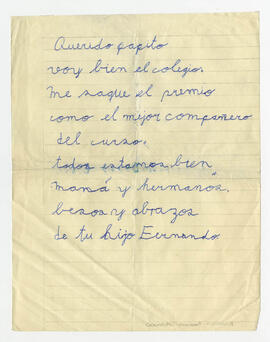 Querido papito
voy bien el colegio.
me saque el premio
como el mijor compañero
del curso.
todos estamos bien
mamá y hermanos.
besos y abrazos
de tu hijo Fernando.